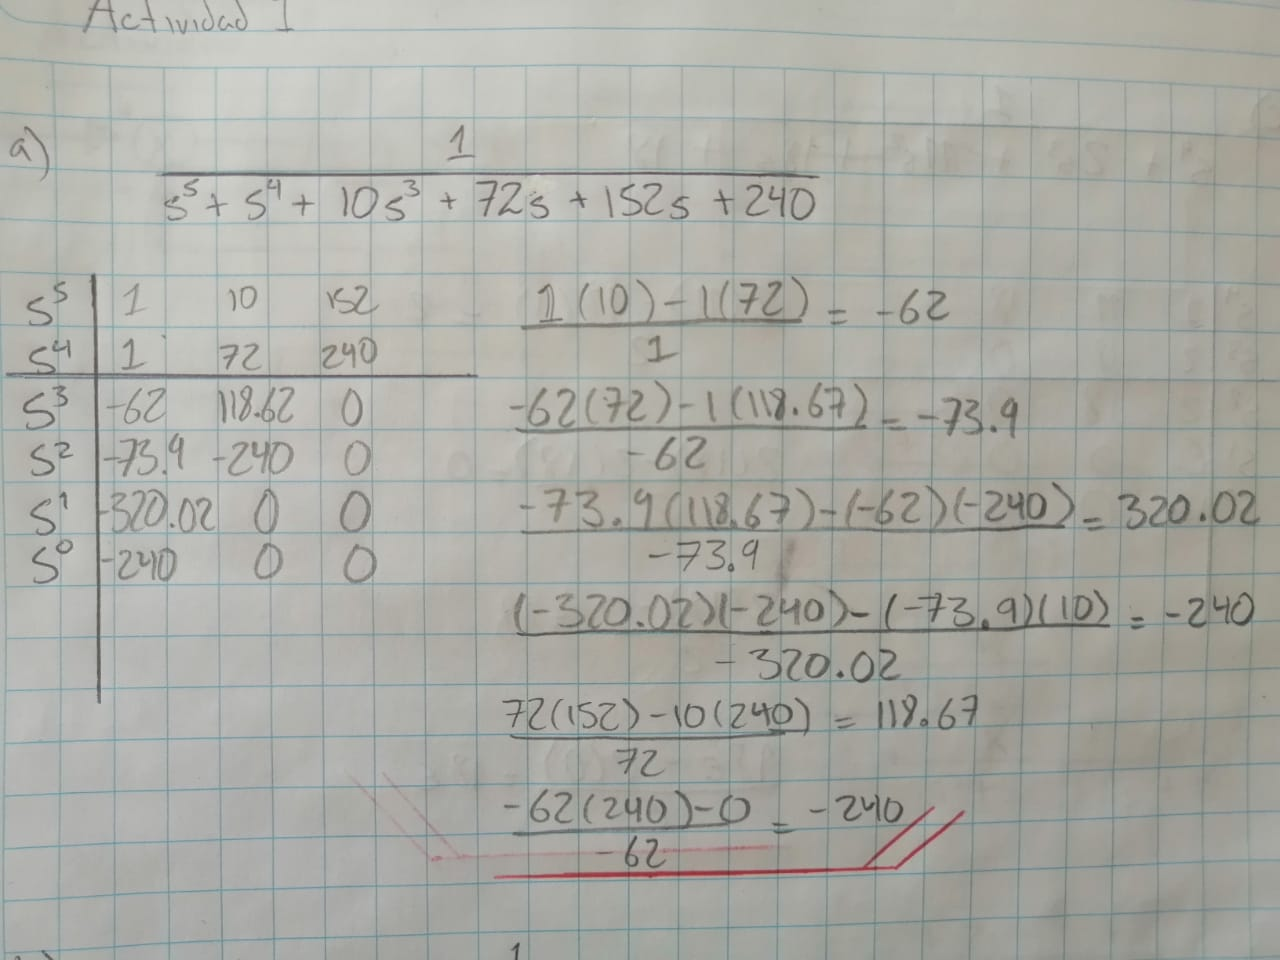 Actividad 1
a)
1
s⁵ + s⁴ + 10s³ + 72s + 152s + 240
s⁵ 1 10 152
s⁴ 1 72 240
s³ -62 118.62 0
s² -73.9 -240 0
s¹ -320.02 0 0
s⁰ -240 0 0
1(10)-1(72) = -62
1
-62(72)-1(118.67) = -73.9
-62
-73.9(118.67)-(-62)(-240) = 320.02
-73.9
(-320.02)(-240)-(-73.9)(10) = -240
-320.02
72(152)-10(240) = 118.67
72
-62(240)-0 = -240
-62
1